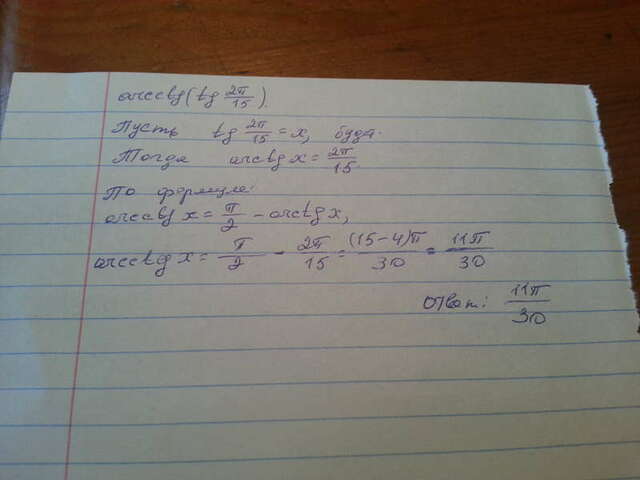 arcctg(tg 2π/15).
Пусть tg 2π/15 = x, будет.
Тогда arctg x = 2π/15.
По формуле:
arcctg x = π/2 - arctg x,
arcctg x = π/2 - 2π/15 = (15-4)π/30 = 11π/30
Ответ: 11π/30